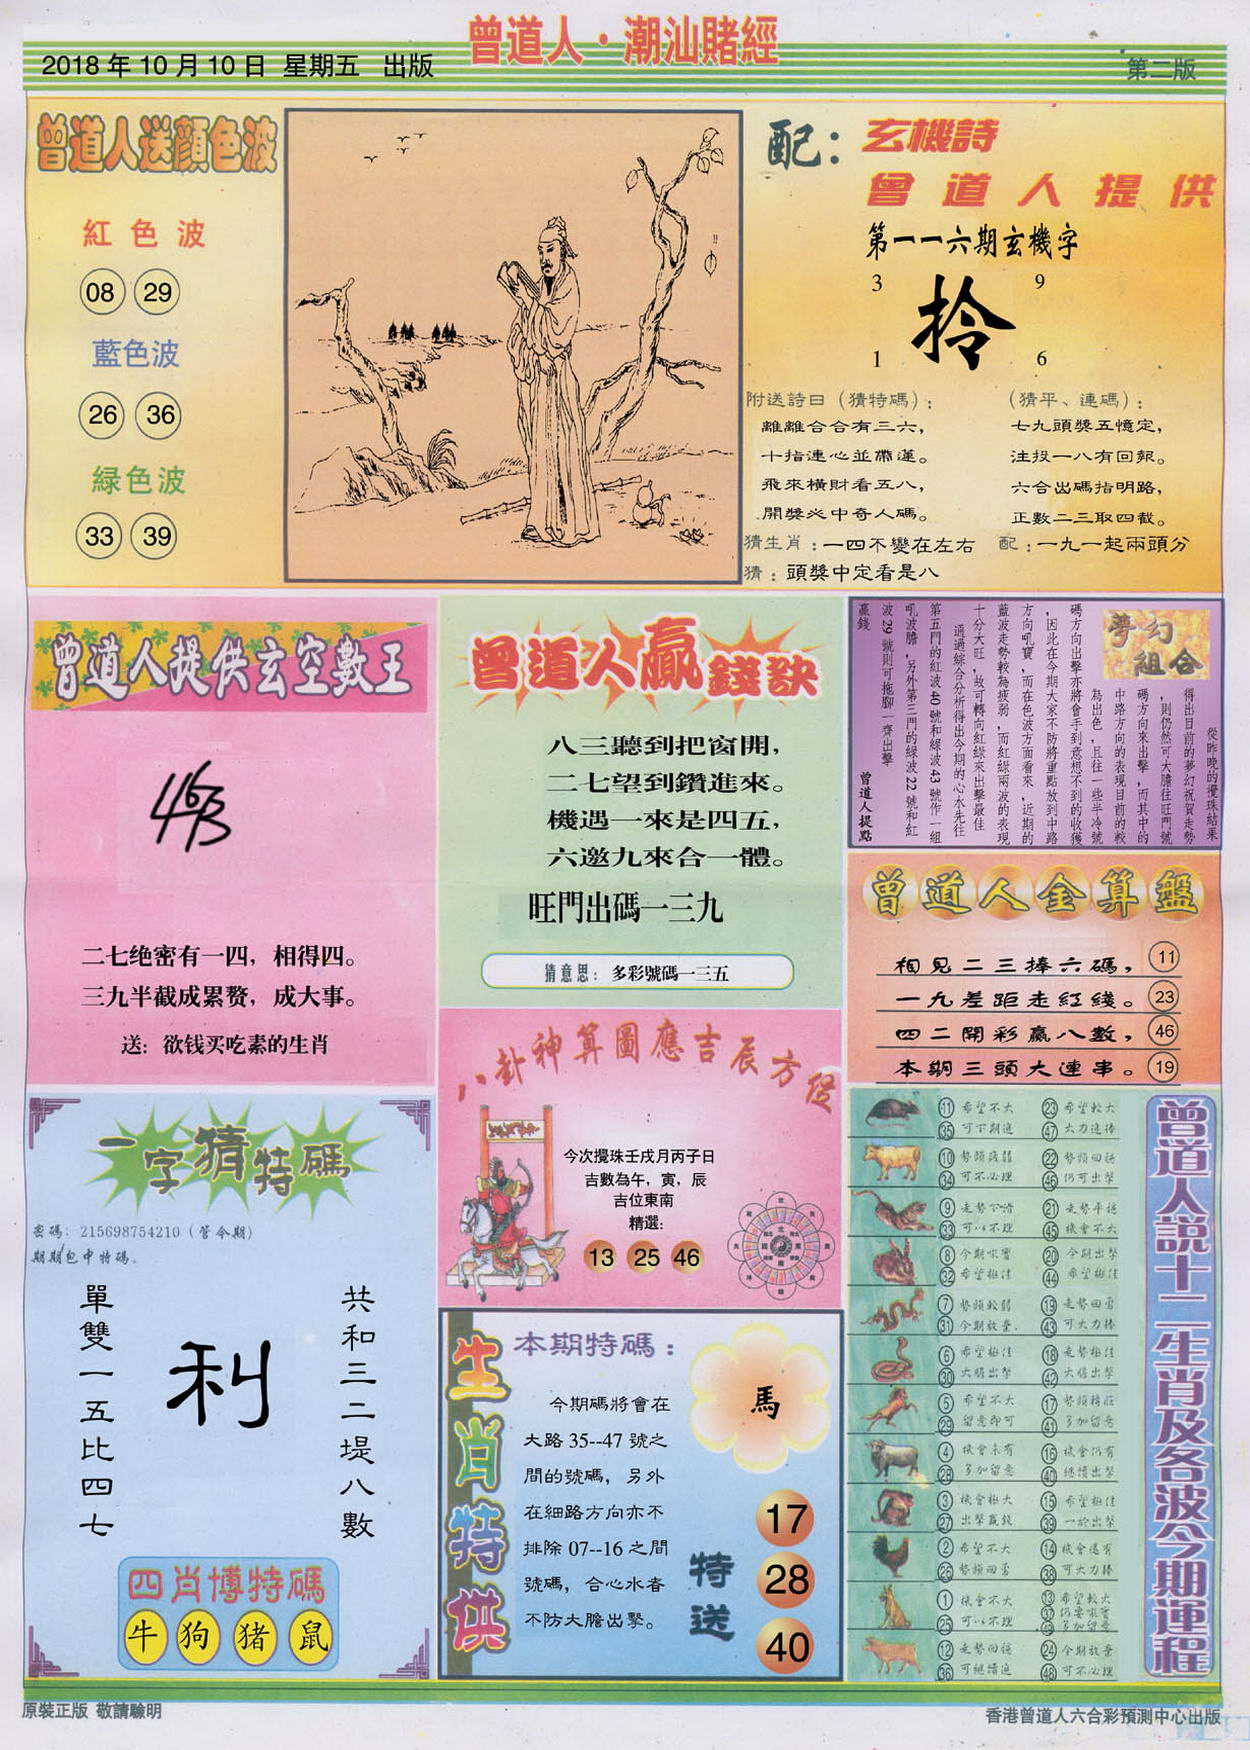 曾道人·潮汕賭經
2018年10月10日 星期五 出版
第二版
曾道人送顏色波
紅色波
08 29
藍色波
26 36
緑色波
33 39
配：玄機詩
曾道人提供
第一一六期玄機字
3 9
拎
1 6
附送詩曰（猜特碼）：
離離合合有三六，
十指連心並蒂蓮。
飛來橫財看五八，
開獎必中奇人碼。
（猜平、連碼）：
七九頭獎五憶定，
注投一八有回報。
六合出碼指明路，
正數二三取四截。
猜生肖：一四不變在左右
配：一九一起兩頭分
猜：頭獎中定看是八
曾道人提供玄空數王
463
二七绝密有一四，相得四。
三九半截成累赘，成大事。
送：欲钱买吃素的生肖
曾道人贏錢訣
八三聽到把窗開，
二七望到鑽進來。
機遇一來是四五，
六邀九來合一體。
旺門出碼一三九
猜意思：多彩號碼一三五
夢幻組合
從昨晚的攪珠結果
得出目前的夢幻祝賀走勢
，則仍然可大膽往旺門號
碼方向來出擊，而其中的
中路方向的表現目前的較
為出色，且往一些半冷號
碼方向出擊亦將會手到意想不到的收獲
，因此在今期大家不防將重點放到中路
方向吼寶，而在色波方面看來，近期的
藍波走勢較為疲弱，而紅綠兩波的表現
十分大旺，故可轉向紅綠來出擊最佳
通過綜合分析得出今期的心水先往
第五門的紅波40號和綠波43號作一組
吼波膽，另外第三門的綠波22號和紅
波29號則可拖腳一齊出擊
贏錢
曾道人提點
曾道人金算盤
相見二三捧六碼， 11
一九差距走紅綫。 23
四二開彩贏八數， 46
本期三頭大連串。 19
八卦神算圖應吉辰方位
今次攪珠壬戌月丙子日
吉數為午，寅，辰
吉位東南
精選：
13 25 46
一字猜特碼
密碼：215698754210（管令期）
期期包中特碼。
單雙一五比四七
利
共和三二堤八數
四肖博特碼
牛 狗 猪 鼠
生肖特供
本期特碼：
今期碼將會在
大路35--47號之
間的號碼，另外
在細路方向亦不
排除07--16之間
號碼，合心水者
不防大膽出擊。
馬
特送
17
28
40
曾道人説十二生肖及各波今期運程
11 希望不大 23 希望較大
35 可下期追 47 大力追捧
10 勢頭疲弱 22 勢頭回穩
34 可不必理 46 仍可出擊
9 21 走勢平穩
33 可以不理 45 機會不大
8 今期吼寶 20 今期出擊
32 希望極佳 44 希望極佳
7 勢頭較弱 19 走勢回勇
31 今期放棄 43 可大力捧
6 希望極佳 18 走勢極佳
30 大膽出擊 42 大膽出擊
5 希望不大 17
29 留意即可 41 多加留意
4 機會未有 16 機會仍有
28 多加留意 40 繼續出擊
3 機會極大 15 希望極佳
27 出擊贏錢 39 一於出擊
2 希望不大 14 機會還有
26 勢頭回勇 38 可大力捧
1 機會不大 13 希望較大
25 可以不理 37 仍要吼寶
49 多加留意
12 走勢回穩 24 今期放棄
36 可繼續追 48 可不必理
原裝正版 敬請驗明
香港曾道人六合彩預測中心出版